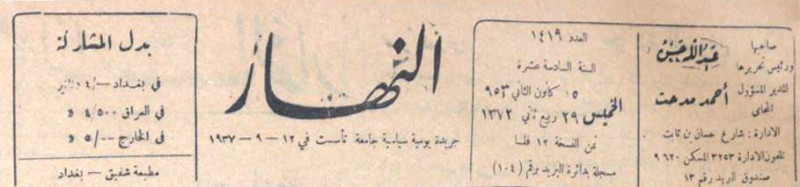 صاحبها
ورئيس تحريرها
عبدالله حسن
المدير المسؤول
المحامي
أحمد مدحت
الادارة : شارع حسان بن ثابت
تلفون الادارة ٣٢٥٣ المسكن ٩٦٢٠
صندوق البريد رقم ١٣
العدد ١٤١٩
السنة السادسة عشرة
الخميس
١٥ كانون الثاني ٩٥٣
٢٩ ربيع ثاني ١٣٧٢
ثمن النسخة ١٢ فلسا
مسجلة بدائرة البريد برقم (١٠٤)
النهار
جريدة يومية سياسية جامعة تأسست في ١٢ - ٩ - ١٩٣٧
بدل المشاركة
في بغداد
في العراق ٤/٥٠٠
في الخارج ٥/٠٠
مطبعة شفيق - بغداد